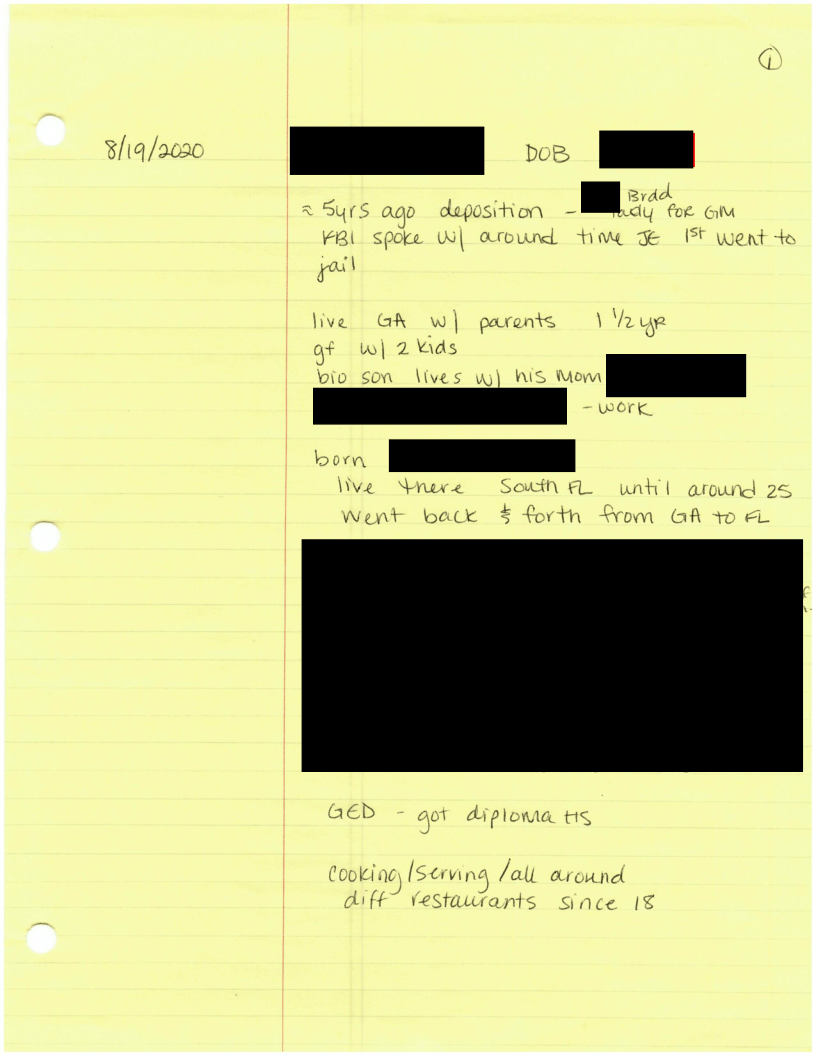 ①
8/19/2020 DOB
Brad
≈ 5yrs ago deposition - lady for GM
FBI spoke w/ around time JE 1st went to
jail
live GA w/ parents 1 1/2 yr
gf w/ 2 kids
bio son lives w/ his mom
- work
born
live there South FL until around 25
went back & forth from GA to FL
GED - got diploma HS
cooking/serving/all around
diff restaurants since 18